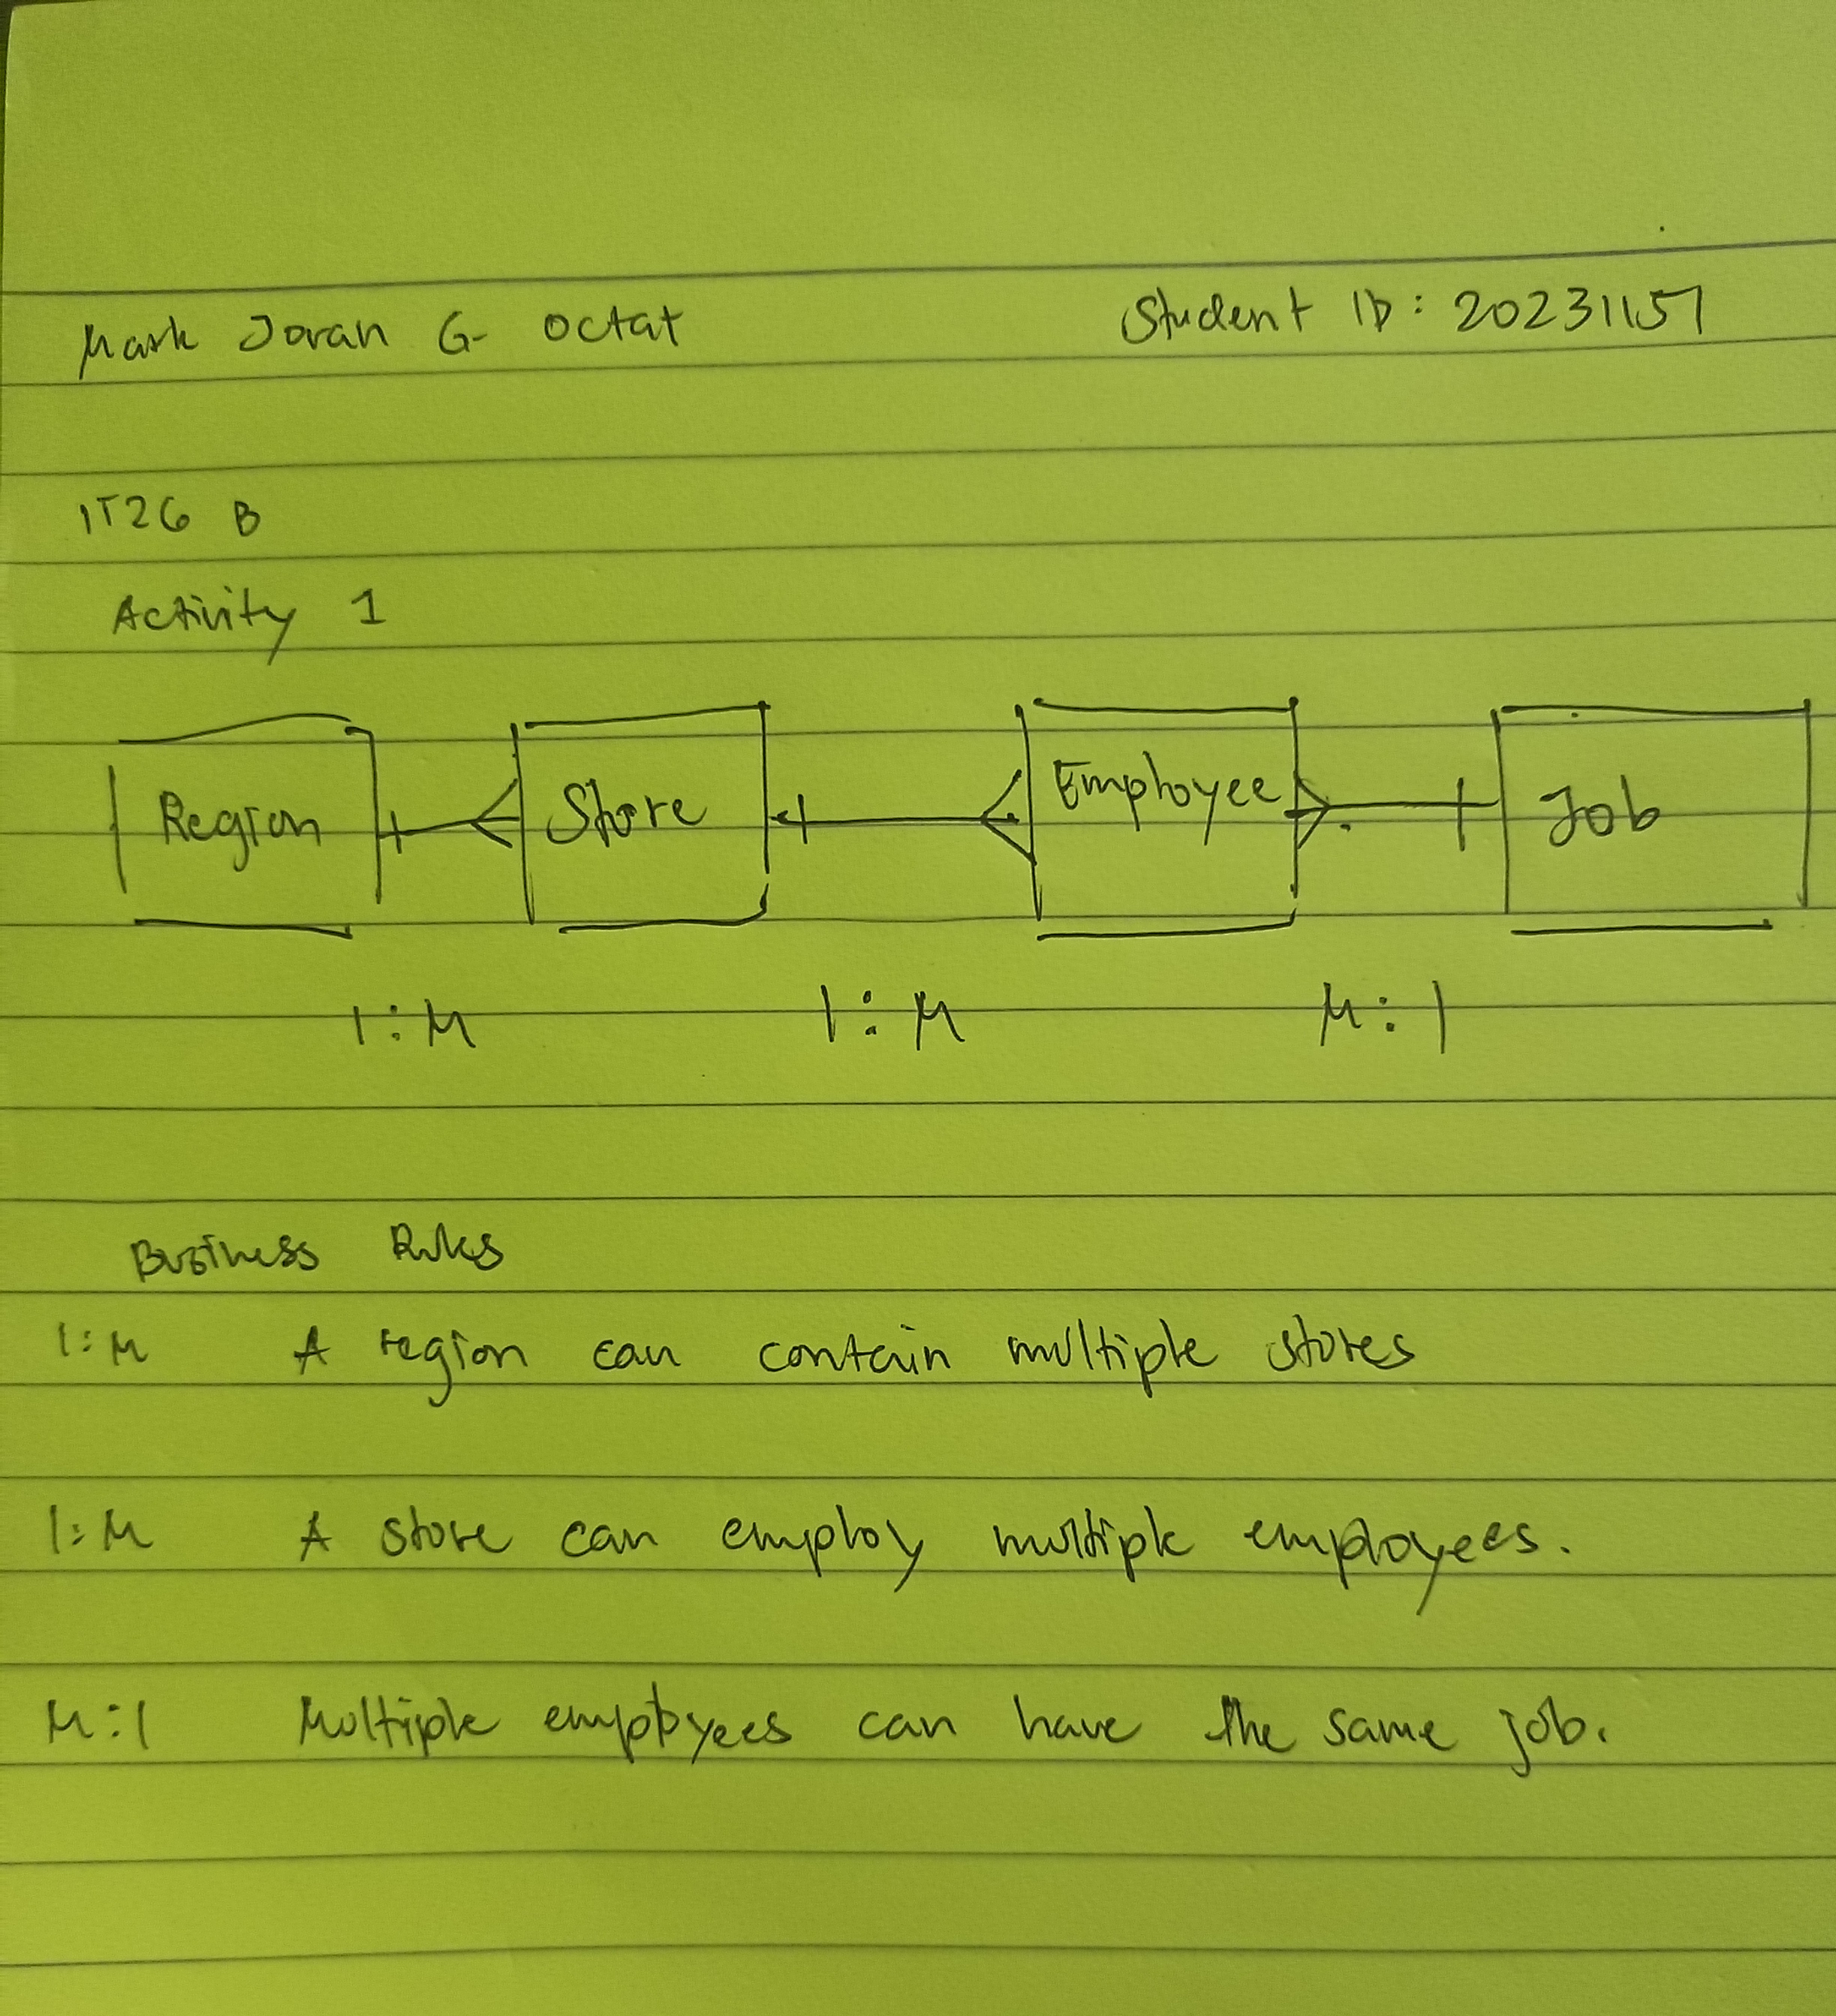 Mark Jovan G. Octat Student ID: 20231157
IT26 B
Activity 1
Region Store Employee Job
1:M 1:M M:1
Business Rules
1:M A region can contain multiple stores
1:M A store can employ multiple employees.
M:1 Multiple employees can have the same job.